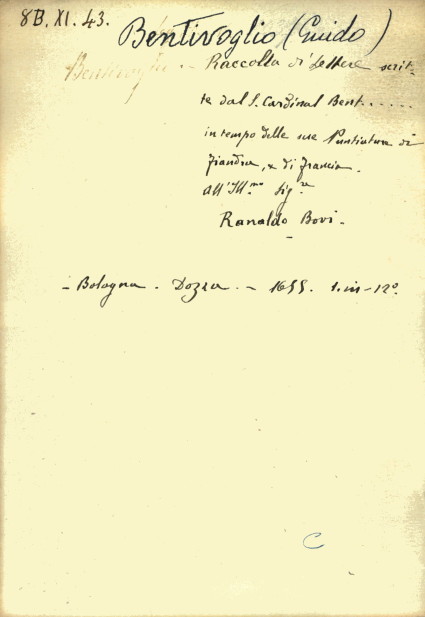 8B. XI. 43.
Bentivoglio (Guido)
Bentivoglio. - Raccolta di lettere scrit-
te dal S. Cardinal Bent......
in tempo delle sue Nuntiature di
fiandra, & di francia.
All'Ill.mo Sig.re
Ranaldo Bovi.
- Bologna. Dozza. - 1655. 1. in-12º.
C